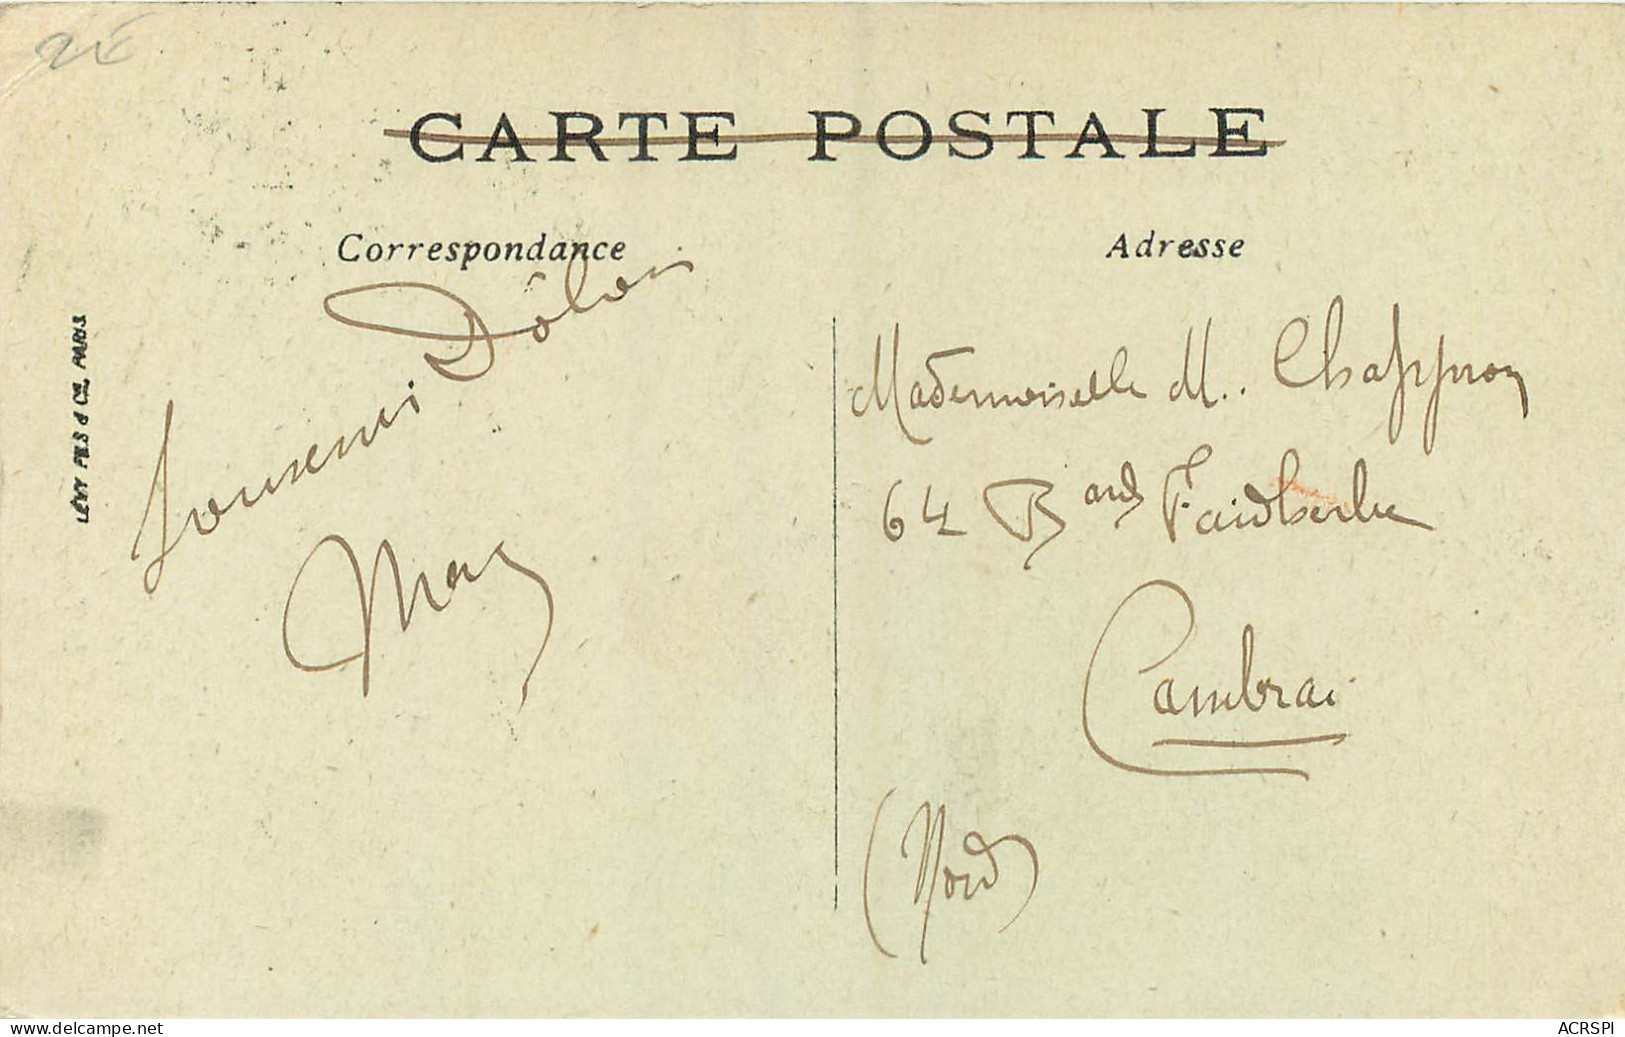 2€
CARTE POSTALE
Correspondance
Adresse
LÉVY FILS & CIE, PARIS
Souvenir
Mademoiselle M.
64 Bard Faidherbe
Cambrai
(Nord)
www.delcampe.net
ACRSPI